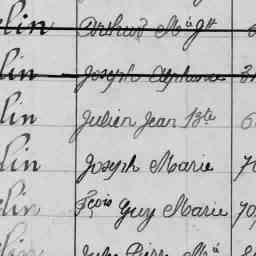 lin Arthur Mie Jh
lin Joseph Alphonse
lin Julien Jean Bte 6
lin Joseph Marie 70
lin Fçois Guy Marie 70
lin Jules Pierre Ma